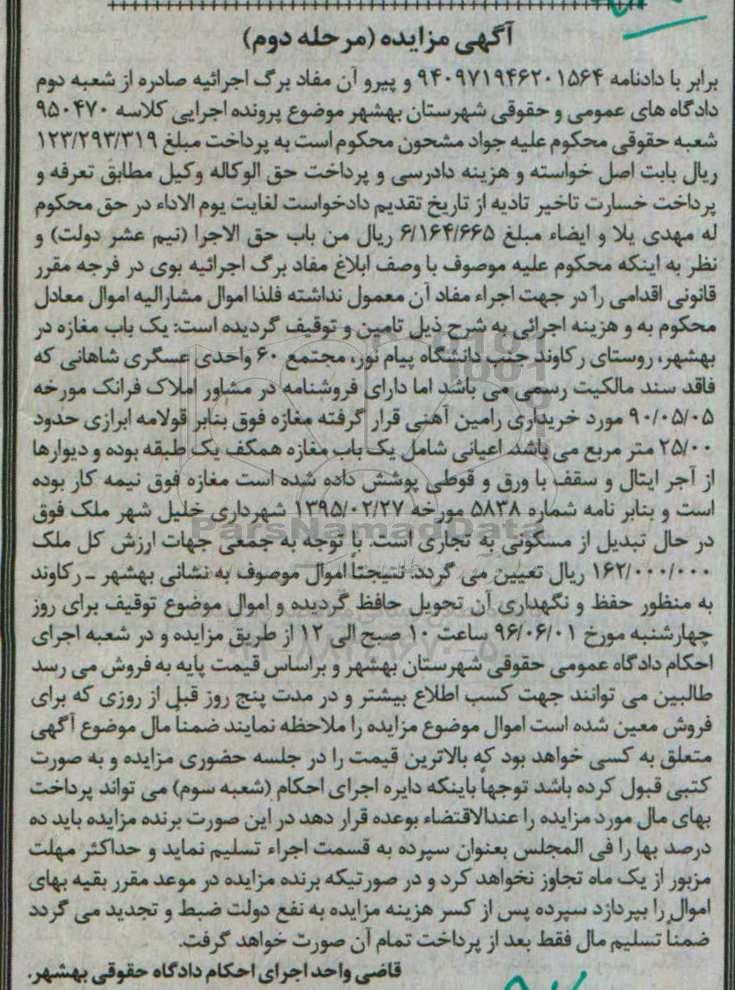 آگهی مزایده (مرحله دوم)
برابر با دادنامه ۹۴۰۹۷۱۹۴۶۲۰۱۵۶۴ و پیرو آن مفاد برگ اجرائیه صادره از شعبه دوم
دادگاه های عمومی و حقوقی شهرستان بهشهر موضوع پرونده اجرایی کلاسه ۹۵۰۴۷۰
شعبه حقوقی محکوم علیه جواد مشحون محکوم است به پرداخت مبلغ ۱۲۳/۲۹۳/۳۱۹
ریال بابت اصل خواسته و هزینه دادرسی و پرداخت حق الوکاله وکیل مطابق تعرفه و
پرداخت خسارت تاخیر تادیه از تاریخ تقدیم دادخواست لغایت یوم الاداء در حق محکوم
له مهدی یلا و ایضاء مبلغ ۶/۱۶۴/۶۶۵ ریال من باب حق الاجرا (نیم عشر دولت) و
نظر به اینکه محکوم علیه موصوف با وصف ابلاغ مفاد برگ اجرائیه بوی در فرجه مقرر
قانونی اقدامی را در جهت اجراء مفاد آن معمول نداشته فلذا اموال مشارالیه اموال معادل
محکوم به و هزینه اجرائی به شرح ذیل تامین و توقیف گردیده است: یک باب مغازه در
بهشهر، روستای رکاوند جنب دانشگاه پیام نور، مجتمع ۶۰ واحدی عسگری شاهانی که
فاقد سند مالکیت رسمی می باشد اما دارای فروشنامه در مشاور املاک فرانک مورخه
۹۰/۰۵/۰۵ مورد خریداری رامین آهنی قرار گرفته مغازه فوق بنابر قولامه ابرازی حدود
۲۵/۰۰ متر مربع می باشد. اعیانی شامل یک باب مغازه همکف یک طبقه بوده و دیوارها
از آجر ایتال و سقف با ورق و قوطی پوشش داده شده است مغازه فوق نیمه کار بوده
است و بنابر نامه شماره ۵۸۳۸ مورخه ۱۳۹۵/۰۲/۲۷ شهرداری خلیل شهر ملک فوق
در حال تبدیل از مسکونی به تجاری است. با توجه به جمعی جهات ارزش کل ملک
۱۶۲/۰۰۰/۰۰۰ ریال تعیین می گردد. نتیجتاً اموال موصوف به نشانی بهشهر ـ رکاوند
به منظور حفظ و نگهداری آن تحویل حافظ گردیده و اموال موضوع توقیف برای روز
چهارشنبه مورخ ۹۶/۰۶/۰۱ ساعت ۱۰ صبح الی ۱۲ از طریق مزایده و در شعبه اجرای
احکام دادگاه عمومی حقوقی شهرستان بهشهر و براساس قیمت پایه به فروش می رسد
طالبین می توانند جهت کسب اطلاع بیشتر و در مدت پنج روز قبل از روزی که برای
فروش معین شده است اموال موضوع مزایده را ملاحظه نمایند ضمناً مال موضوع آگهی
متعلق به کسی خواهد بود که بالاترین قیمت را در جلسه حضوری مزایده و به صورت
کتبی قبول کرده باشد توجهاً باینکه دایره اجرای احکام (شعبه سوم) می تواند پرداخت
بهای مال مورد مزایده را عندالاقتضاء بوعده قرار دهد در این صورت برنده مزایده باید ده
درصد بها را فی المجلس بعنوان سپرده به قسمت اجراء تسلیم نماید و حداکثر مهلت
مزبور از یک ماه تجاوز نخواهد کرد و در صورتیکه برنده مزایده در موعد مقرر بقیه بهای
اموال را بپردازد سپرده پس از کسر هزینه مزایده به نفع دولت ضبط و تجدید می گردد
ضمناً تسلیم مال فقط بعد از پرداخت تمام آن صورت خواهد گرفت.
قاضی واحد اجرای احکام دادگاه حقوقی بهشهر.
ParsNamadData